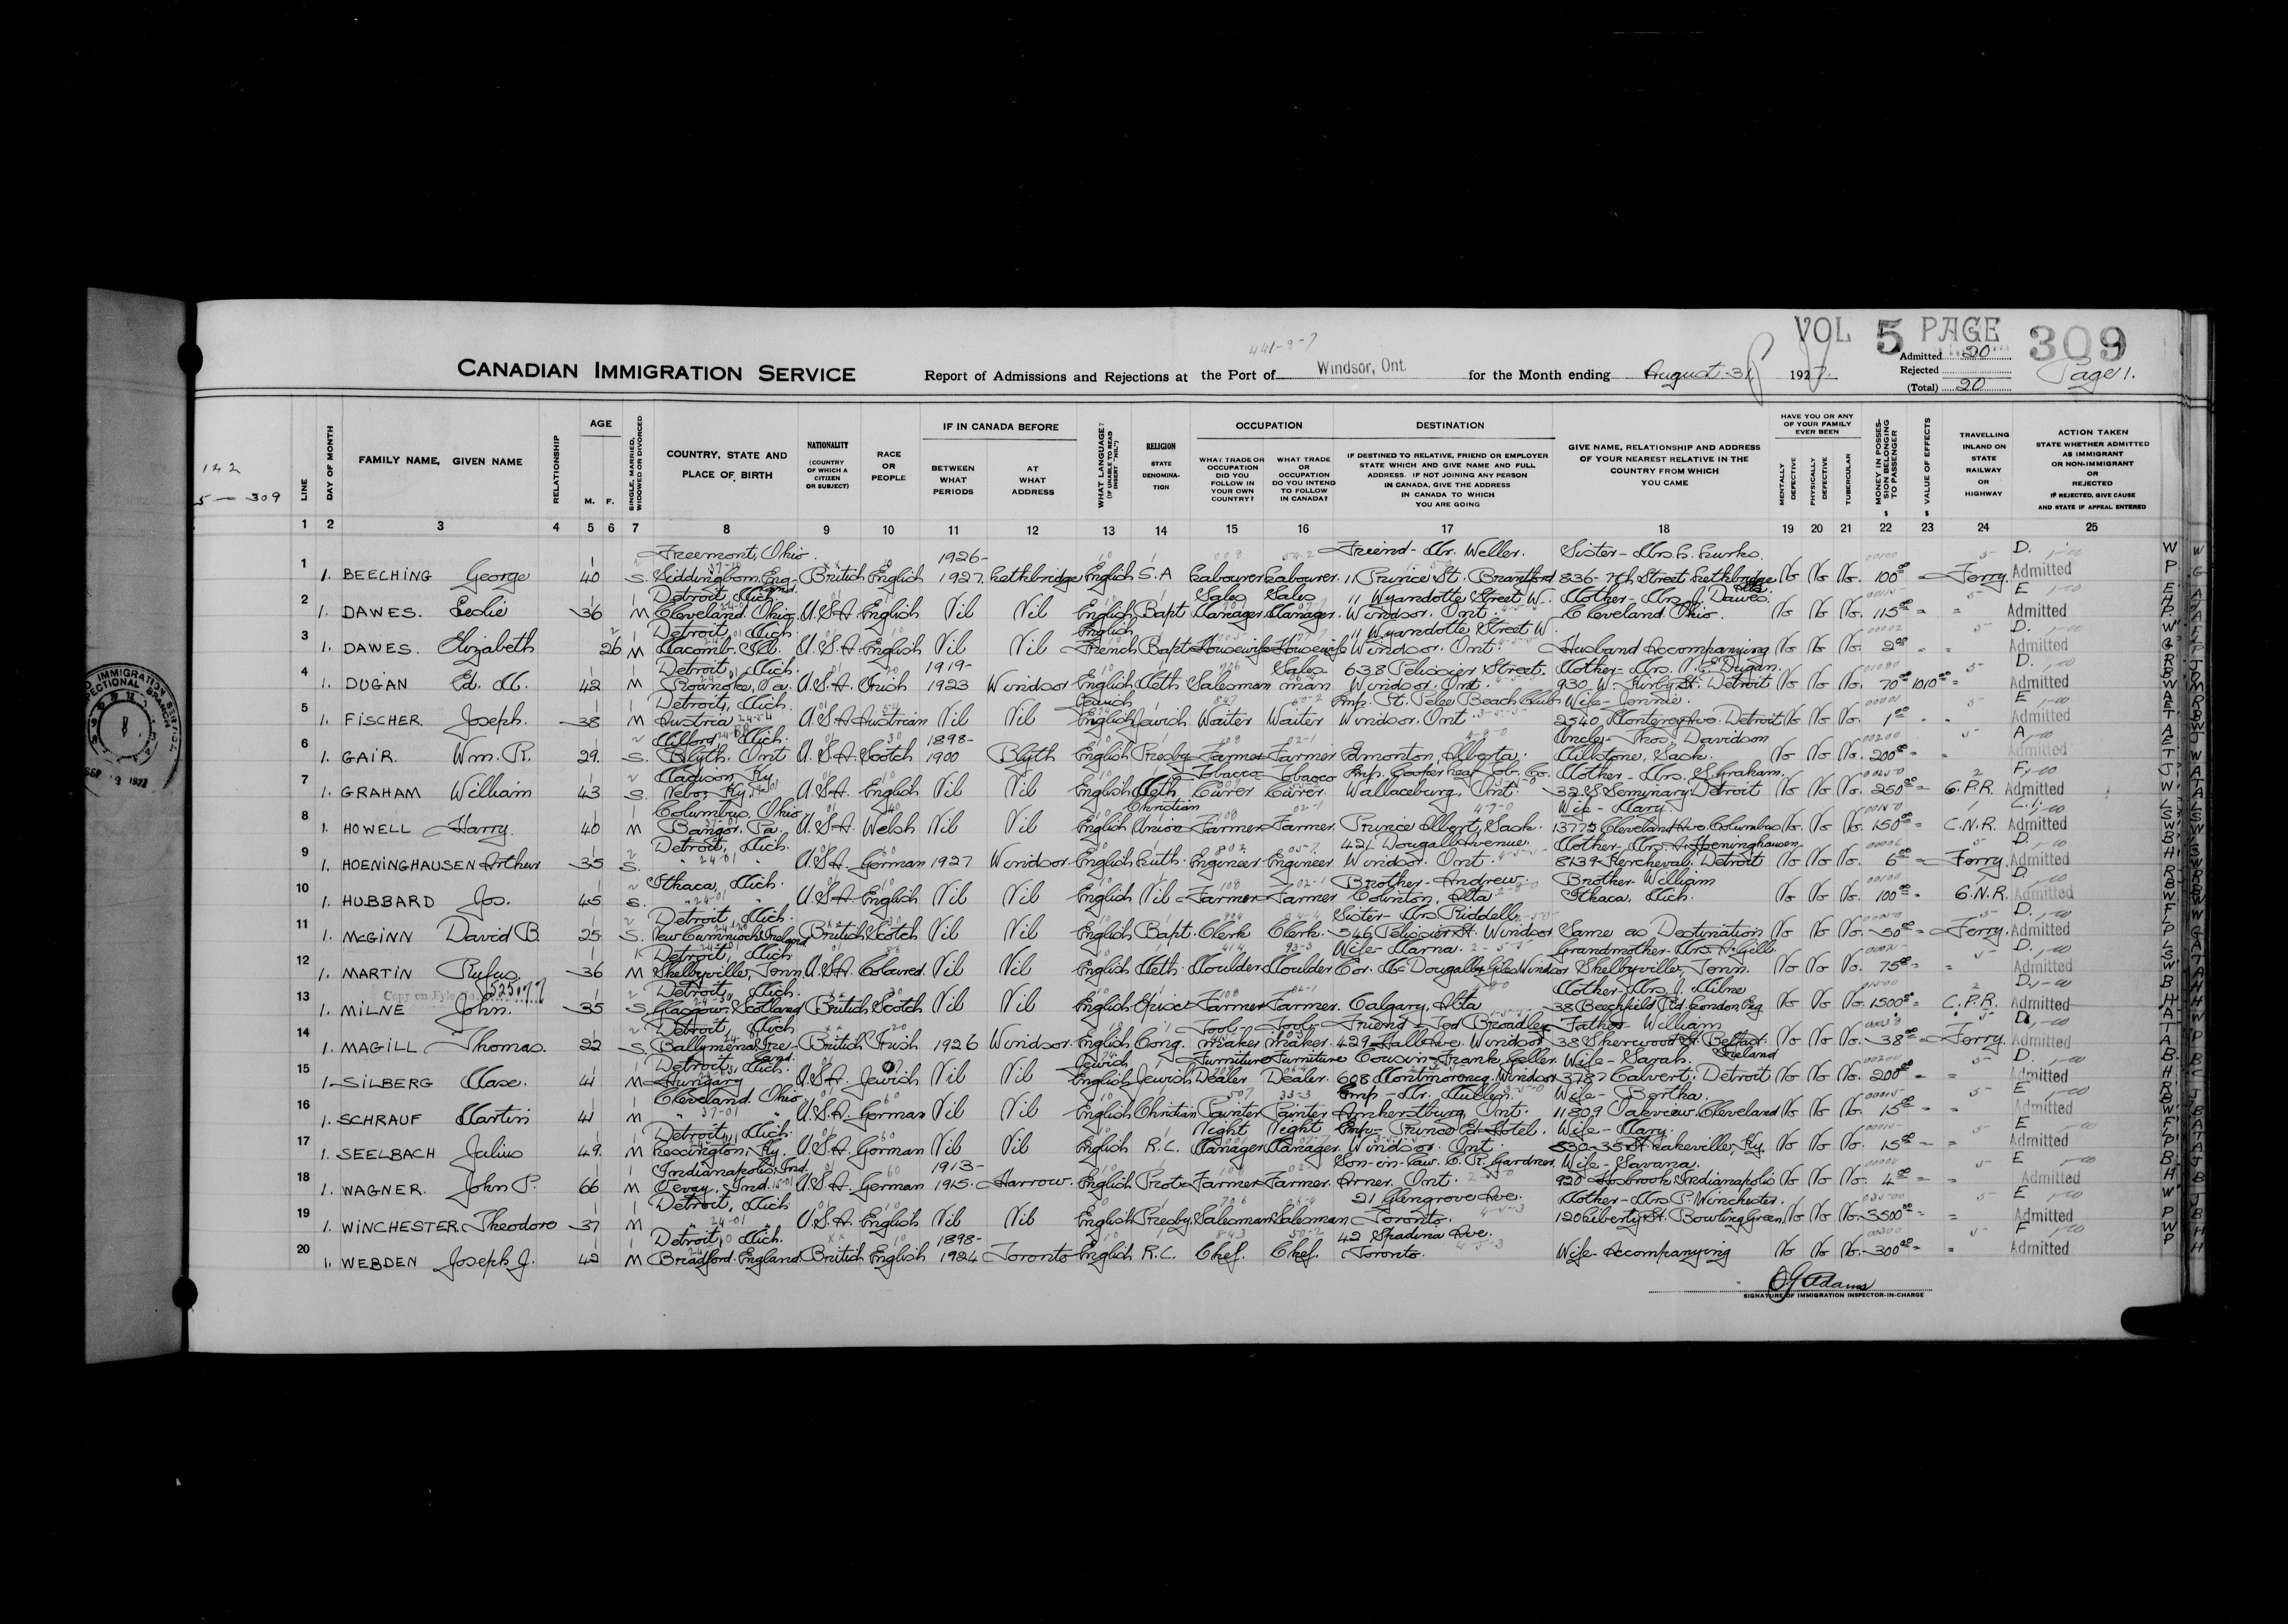 VOL 5 PAGE 309
441-8-7
CANADIAN IMMIGRATION SERVICE Report of Admissions and Rejections at the Port of Windsor, Ont. for the Month ending August 31 1927.
Admitted 20
Rejected
(Total) 20
Page 1.
142
5 — 309
LINE
DAY OF MONTH
FAMILY NAME, GIVEN NAME
RELATIONSHIP
AGE
M. F.
SINGLE, MARRIED, WIDOWED OR DIVORCED
COUNTRY, STATE AND PLACE OF BIRTH
NATIONALITY (COUNTRY OF WHICH A CITIZEN OR SUBJECT)
RACE OR PEOPLE
IF IN CANADA BEFORE
BETWEEN WHAT PERIODS
AT WHAT ADDRESS
WHAT LANGUAGE? (IF UNABLE TO READ INSERT "NIL")
RELIGION STATE DENOMINATION
OCCUPATION
WHAT TRADE OR OCCUPATION DID YOU FOLLOW IN YOUR OWN COUNTRY?
WHAT TRADE OR OCCUPATION DO YOU INTEND TO FOLLOW IN CANADA?
DESTINATION
IF DESTINED TO RELATIVE, FRIEND OR EMPLOYER STATE WHICH AND GIVE NAME AND FULL ADDRESS. IF NOT JOINING ANY PERSON IN CANADA, GIVE THE ADDRESS IN CANADA TO WHICH YOU ARE GOING
GIVE NAME, RELATIONSHIP AND ADDRESS OF YOUR NEAREST RELATIVE IN THE COUNTRY FROM WHICH YOU CAME
HAVE YOU OR ANY OF YOUR FAMILY EVER BEEN
MENTALLY DEFECTIVE
PHYSICALLY DEFECTIVE
TUBERCULAR
MONEY IN POSSESSION BELONGING TO PASSENGER $
VALUE OF EFFECTS $
TRAVELLING INLAND ON STATE RAILWAY OR HIGHWAY
ACTION TAKEN STATE WHETHER ADMITTED AS IMMIGRANT OR NON-IMMIGRANT OR REJECTED IF REJECTED, GIVE CAUSE AND STATE IF APPEAL ENTERED
1 2 3 4 5 6 7 8 9 10 11 12 13 14 15 16 17 18 19 20 21 22 23 24 25
Freemont, Ohio. 1926- Friend - Mr. Weller. Sister - Mrs. D.
1 1. BEECHING George 40 S. Eng- British English 1927. Lethbridge English S.A Labourer Labourer. 11 Prince St. Brantford 836 - 7th Street Lethbridge No No No. 100 Ferry. Admitted
Detroit, Mich. Sales Sales 11 Wyandotte Street W. Mother - Mrs. J. Dawes. E
2 1. DAWES. Leslie 36 M Cleveland. Ohio. U.S.A. English Nil Nil English Bapt Manager. Manager. Windsor. Ont. Cleveland. Ohio. No No No. 115 Admitted
Detroit, Mich. English 11 Wyandotte Street W. D.
3 1. DAWES. Elizabeth 26 M Macomb. Ill. U.S.A. English Nil Nil French Bapt Housewife Housewife Windsor. Ont. Husband Accompanying No No No. 2 Admitted
Detroit, Mich. 1919- Sales 638 Pelissier Street. Mother - Mrs. N.E. Dugan. D.
4 1. DUGAN Ed. M. 42 M Roanoke, Va. U.S.A. Irish 1923 Windsor English Meth Salesman man Windsor. Ont. 930 W. Kirby St. Detroit No No No. 70 1010 Admitted
Detroit, Mich. Emp. St. Pelee Beach Club Wife - Jennie. E
5 1. FISCHER. Joseph. 38 M Austria U.S.A. Austrian Nil Nil English Jewish Waiter Waiter Windsor. Ont. 2540 Monterey Ave. Detroit No No No. 1 Admitted
Mich. 1898- Uncle - Thos. Davidson A
6 1. GAIR. Wm. R. 29. S. Blyth. Ont U.S.A. Scotch 1900 Blyth English Presby Farmer Farmer Edmonton, Alberta. Sask. No No No. 200 Admitted
Madison, Ky. Tobacco Tobacco Emp. Cooper Leaf Tob. Co. Mother - Mrs. S. Graham. F
7 1. GRAHAM William 43 S. Nebo, Ky. U.S.A. English Nil Nil English Meth Curer Curer. Wallaceburg, Ont. 328 Seminary Detroit No No No. 250 C.P.R. Admitted
Columbus, Ohio Christian Wife - Mary.
8 1. HOWELL Harry. 40 M Bangor. Pa. U.S.A. Welsh Nil Nil English Union Farmer Farmer. Prince Albert, Sask. 1377½ Cleveland Ave. Columbus No. No No. 150 C.N.R. Admitted
Detroit, Mich. 421 Dougall Avenue. Mother - Mrs. A. Hoeninghausen. D.
9 1. HOENINGHAUSEN Arthur 35 S. " " U.S.A. German 1927 Windsor English Luth. Engineer Engineer Windsor. Ont. 8139 Kercheval, Detroit No No No. 6 Ferry. Admitted
Ithaca, Mich. Brother - Andrew. Brother - William D.
10 1. HUBBARD Jos. 45 S. " " U.S.A. English Nil Nil English Nil Farmer Farmer Colinton, Alta Ithaca, Mich. No No No. 100 C.N.R. Admitted
Detroit, Mich. Sister - Mrs Riddell D.
11 1. McGINN David B. 25 S. New Cumnock, Ireland British Scotch Nil Nil English Bapt. Clerk Clerk. 546 Pelissier St. Windsor Same as Destination No No No. 50 Ferry. Admitted
Detroit, Mich Wife - Marna. Grandmother - Mrs. A. Gill. D.
12 1. MARTIN Rufus. 36 M Shelbyville, Tenn. U.S.A. Coloured. Nil Nil English Meth. Moulder Moulder Cor. McDougall & Giles Windsor Shelbyville, Tenn. No No No. 75 Admitted
Copy on Fyle 525177 Detroit, Mich. Mother - Mrs. J. Milne D.
13 1. MILNE John. 35 S. Glasgow. Scotland British Scotch Nil Nil English Episc Farmer Farmer. Calgary, Alta 38 Beechfield Rd. London Eng No No No. 1500 C.P.R. Admitted
Detroit, Mich Tool- Tool- Friend - Jos Broadley Father - William D.
14 1. MAGILL Thomas. 22 S. Ballymena, Ire- British Irish 1926 Windsor. English Cong. maker maker. 429 Hall Ave. Windsor 38 Sherwood St. Belfast. Ireland No No No. 38 Ferry. Admitted
land. Detroit, Mich. Jewish, Furniture Furniture Cousin - Frank Geller. Wife - Sarah. D.
15 1. SILBERG Max. 41 M Hungary U.S.A. Jewish Nil Nil English Jewish Dealer Dealer. 608 Montmorency. Windsor 3787 Calvert. Detroit No No No. 200 Admitted
Cleveland. Ohio. Emp - Mr. Mullen. Wife - Bertha. E
16 1. SCHRAUF Martin 41 M " " U.S.A. German Nil Nil English Christian Painter Painter Amherstburg, Ont. 11809 Oakview. Cleveland No No No. 15 Admitted
Detroit, Mich. Night Night Emp - Prince Ed. Hotel. Wife - Mary. E
17 1. SEELBACH Julius 49. M Lexington, Ky. U.S.A. German Nil Nil English R.C. Manager Manager. Windsor. Ont. 530 - 35 St. Lakeville, Ky. No No No. 15 Admitted
Indianapolis, Ind. 1913- Son-in-law. C. R. Gardner. Wife - Savana. E
18 1. WAGNER. John P. 66 M Vevay. Ind. U.S.A. German 1915. Harrow. English Prot. Farmer Farmer. Arner. Ont. 920 Hosbrook Indianapolis No No No. 4 Admitted
Detroit, Mich 21 Glengrove Ave. Mother - Mrs P. Winchester. E
19 1. WINCHESTER. Theodore 37 M " " U.S.A. English Nil Nil English Presby. Salesman Salesman Toronto. 120 Liberty St. Bowling Green No No No. 3500 Admitted
Detroit, Mich. 1898- 42 Spadina Ave. F
20 1. WEBDEN Joseph J. 42 M Bradford. England. British English 1924 Toronto English R.C. Chef. Chef. Toronto. Wife - Accompanying No No No. 300 Admitted
SIGNATURE OF IMMIGRATION INSPECTOR-IN-CHARGE